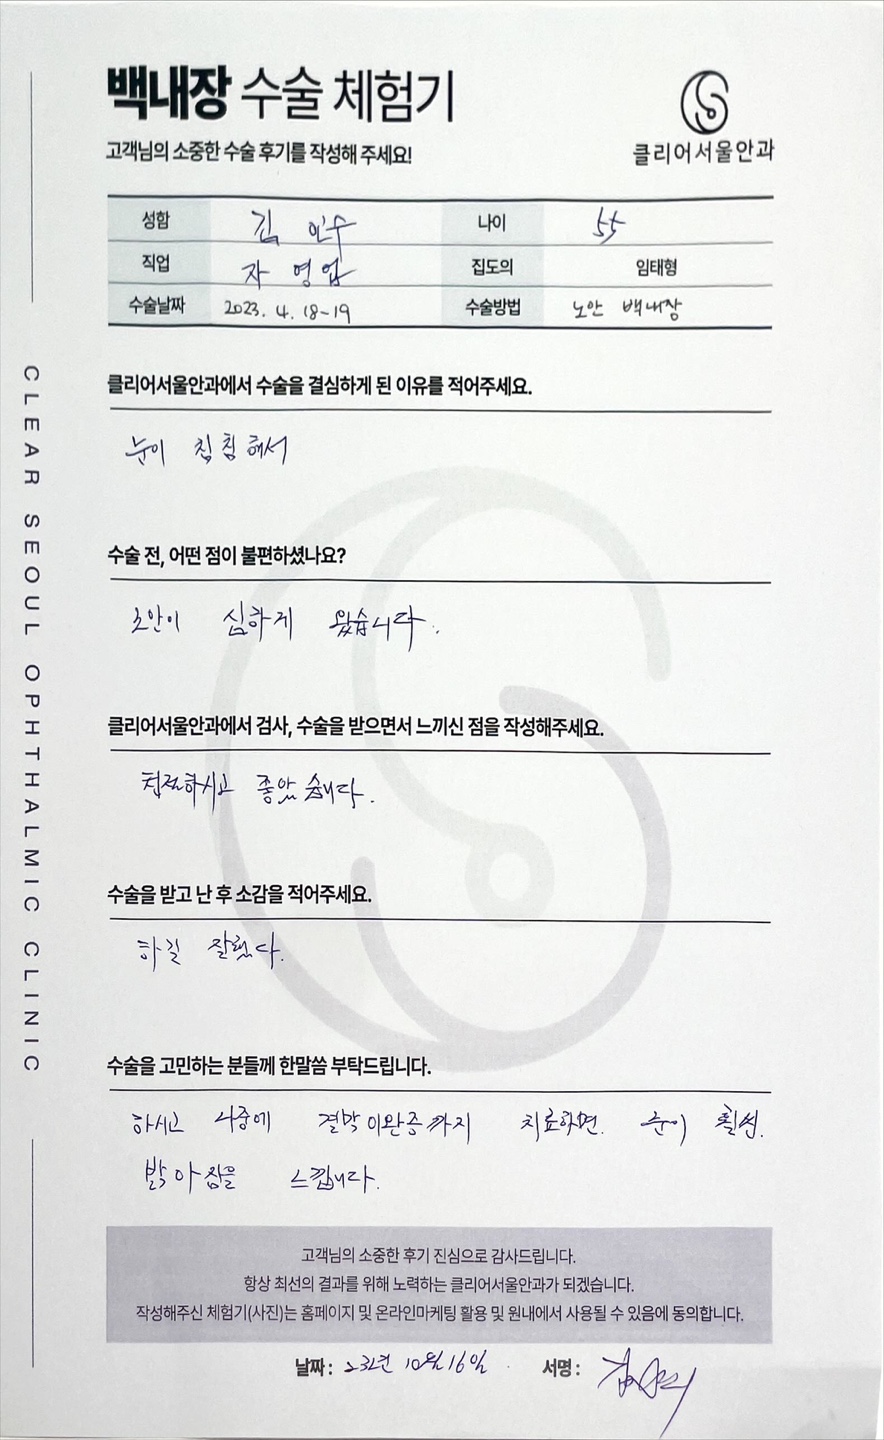 백내장 수술 체험기
고객님의 소중한 수술 후기를 작성해 주세요!
클리어서울안과
성함 김인수 나이 55
직업 자영업 집도의 임태형
수술날짜 2023. 4. 18-19 수술방법 노안 백내장
CLEAR SEOUL OPHTHALMIC CLINIC
클리어서울안과에서 수술을 결심하게 된 이유를 적어주세요.
눈이 침침해서
수술 전, 어떤 점이 불편하셨나요?
노안이 심하게 왔습니다.
클리어서울안과에서 검사, 수술을 받으면서 느끼신 점을 작성해주세요.
친절하시고 좋았습니다.
수술을 받고 난 후 소감을 적어주세요.
하길 잘했다.
수술을 고민하는 분들께 한말씀 부탁드립니다.
하시고 나중에 결막이완증까지 치료하면. 눈이 훨씬.
밝아짐을 느낍니다.
고객님의 소중한 후기 진심으로 감사드립니다.
항상 최선의 결과를 위해 노력하는 클리어서울안과가 되겠습니다.
작성해주신 체험기(사진)는 홈페이지 및 온라인마케팅 활용 및 원내에서 사용될 수 있음에 동의합니다.
날짜 : 23년 10월 16일 서명 :